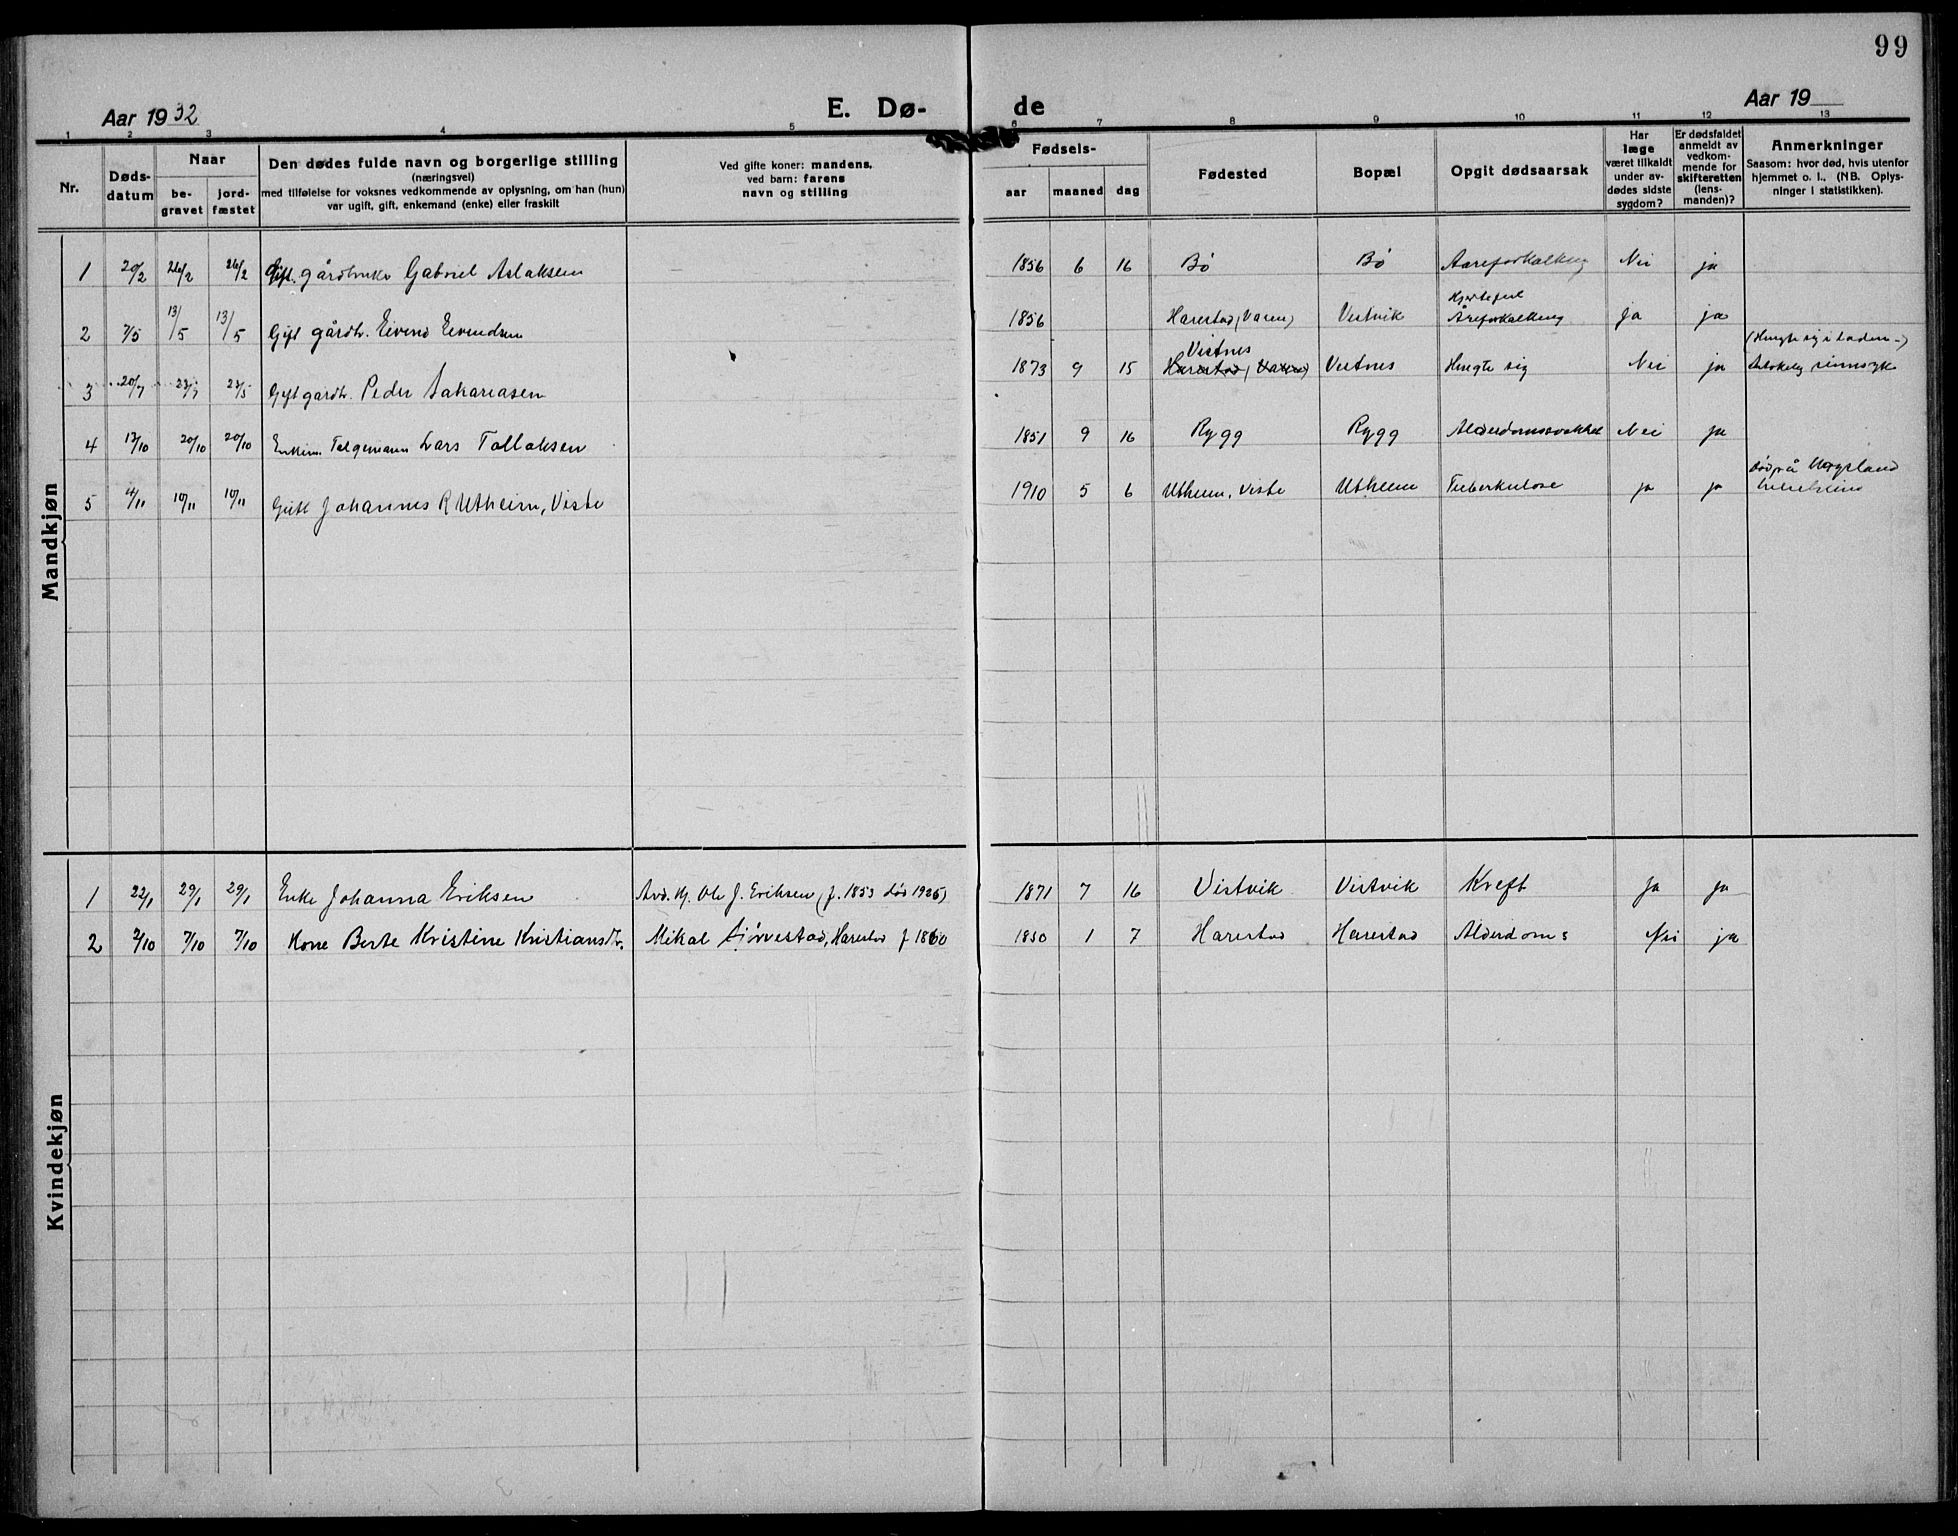 99
Aar 1932
E. Dø-
de
Aar 19
1 2 3 4 5 6 7 8 9 10 11 12 13
Nr.
Døds-
datum
Naar
be-
gravet
jord-
fæstet
Den dødes fulde navn og borgerlige stilling
(næringsvei)
med tilføielse for voksnes vedkommende av oplysning, om han (hun)
var ugift, gift, enkemand (enke) eller fraskilt
Ved gifte koner: mandens,
ved barn: farens
navn og stilling
Fødsels-
aar
maaned
dag
Fødested
Bopæl
Opgit dødsaarsak
Har
læge
været tilkaldt
under av-
dødes sidste
sygdom?
Er dødsfaldet
anmeldt av
vedkom-
mende for
skifteretten
(lens-
manden)?
Anmerkninger
Saasom: hvor død, hvis utenfor
hjemmet o. l., (NB. Oplys-
ninger i statistikken).
Mandkjøn
1 20/2 26/2 26/2 Gift. gårdbruker Gabriel Aslaksen 1856 6 16 Bø Bø Aareforkalkning Nei ja
2 7/5 13/5 13/5 Gift gårdbr. Eivind Eivindsen 1856 Harestad (Varen) Vistvik Hjertefeil
Åreforkalkning Ja ja
3 20/7 23/7 23/5 Gift gårdbr. Peder Sakariasen 1873 9 15 Vistnes
Harestad (Varen) Vistnes Hengte sig Nei ja (Hengte sig i laden -)
sinnsyk
4 13/10 20/10 20/10 Enkem. Lars Tollaksen 1851 9 16 Rygg Rygg Alderdomssvakhet Nei ja
5 4/11 10/11 10/11 Gift Johannes R Utheim, Viste 1910 5 6 Utheim, Viste Utheim Tuberkulose ja ja Død på
Kvindekjøn
1 22/1 29/1 29/1 Enke Johanna Eriksen Avd. Ole J. Eriksen (f. 1853 død 1926) 1871 7 16 Vistvik Vistvik Kreft Ja ja
2 2/10 7/10 7/10 Kone Berte Kristine Kristiansdtr. Mikal Sjörvestad, Harestad f 1860 1850 1 7 Harestad Harestad Alderdoms Nei ja